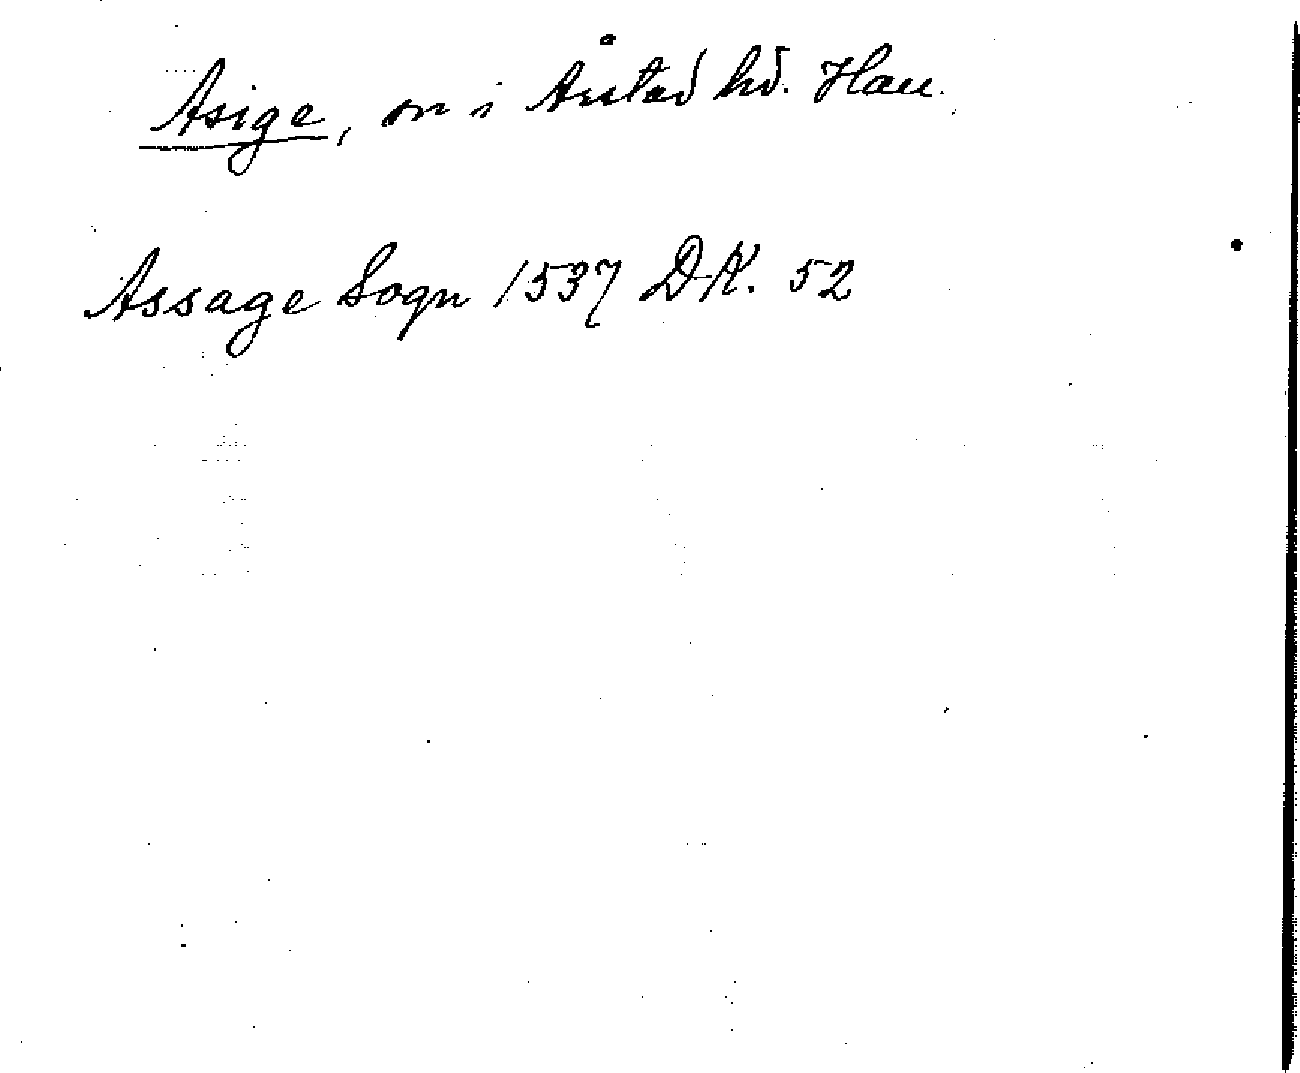 Asige, sn i Årstad hd. Hall.
Assage Sogn 1537 DK. 52